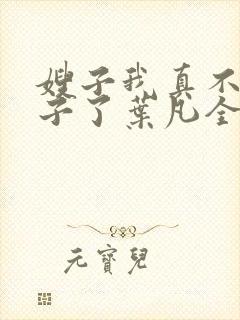 嫂子我真不
子了葉凡全
元寶兒